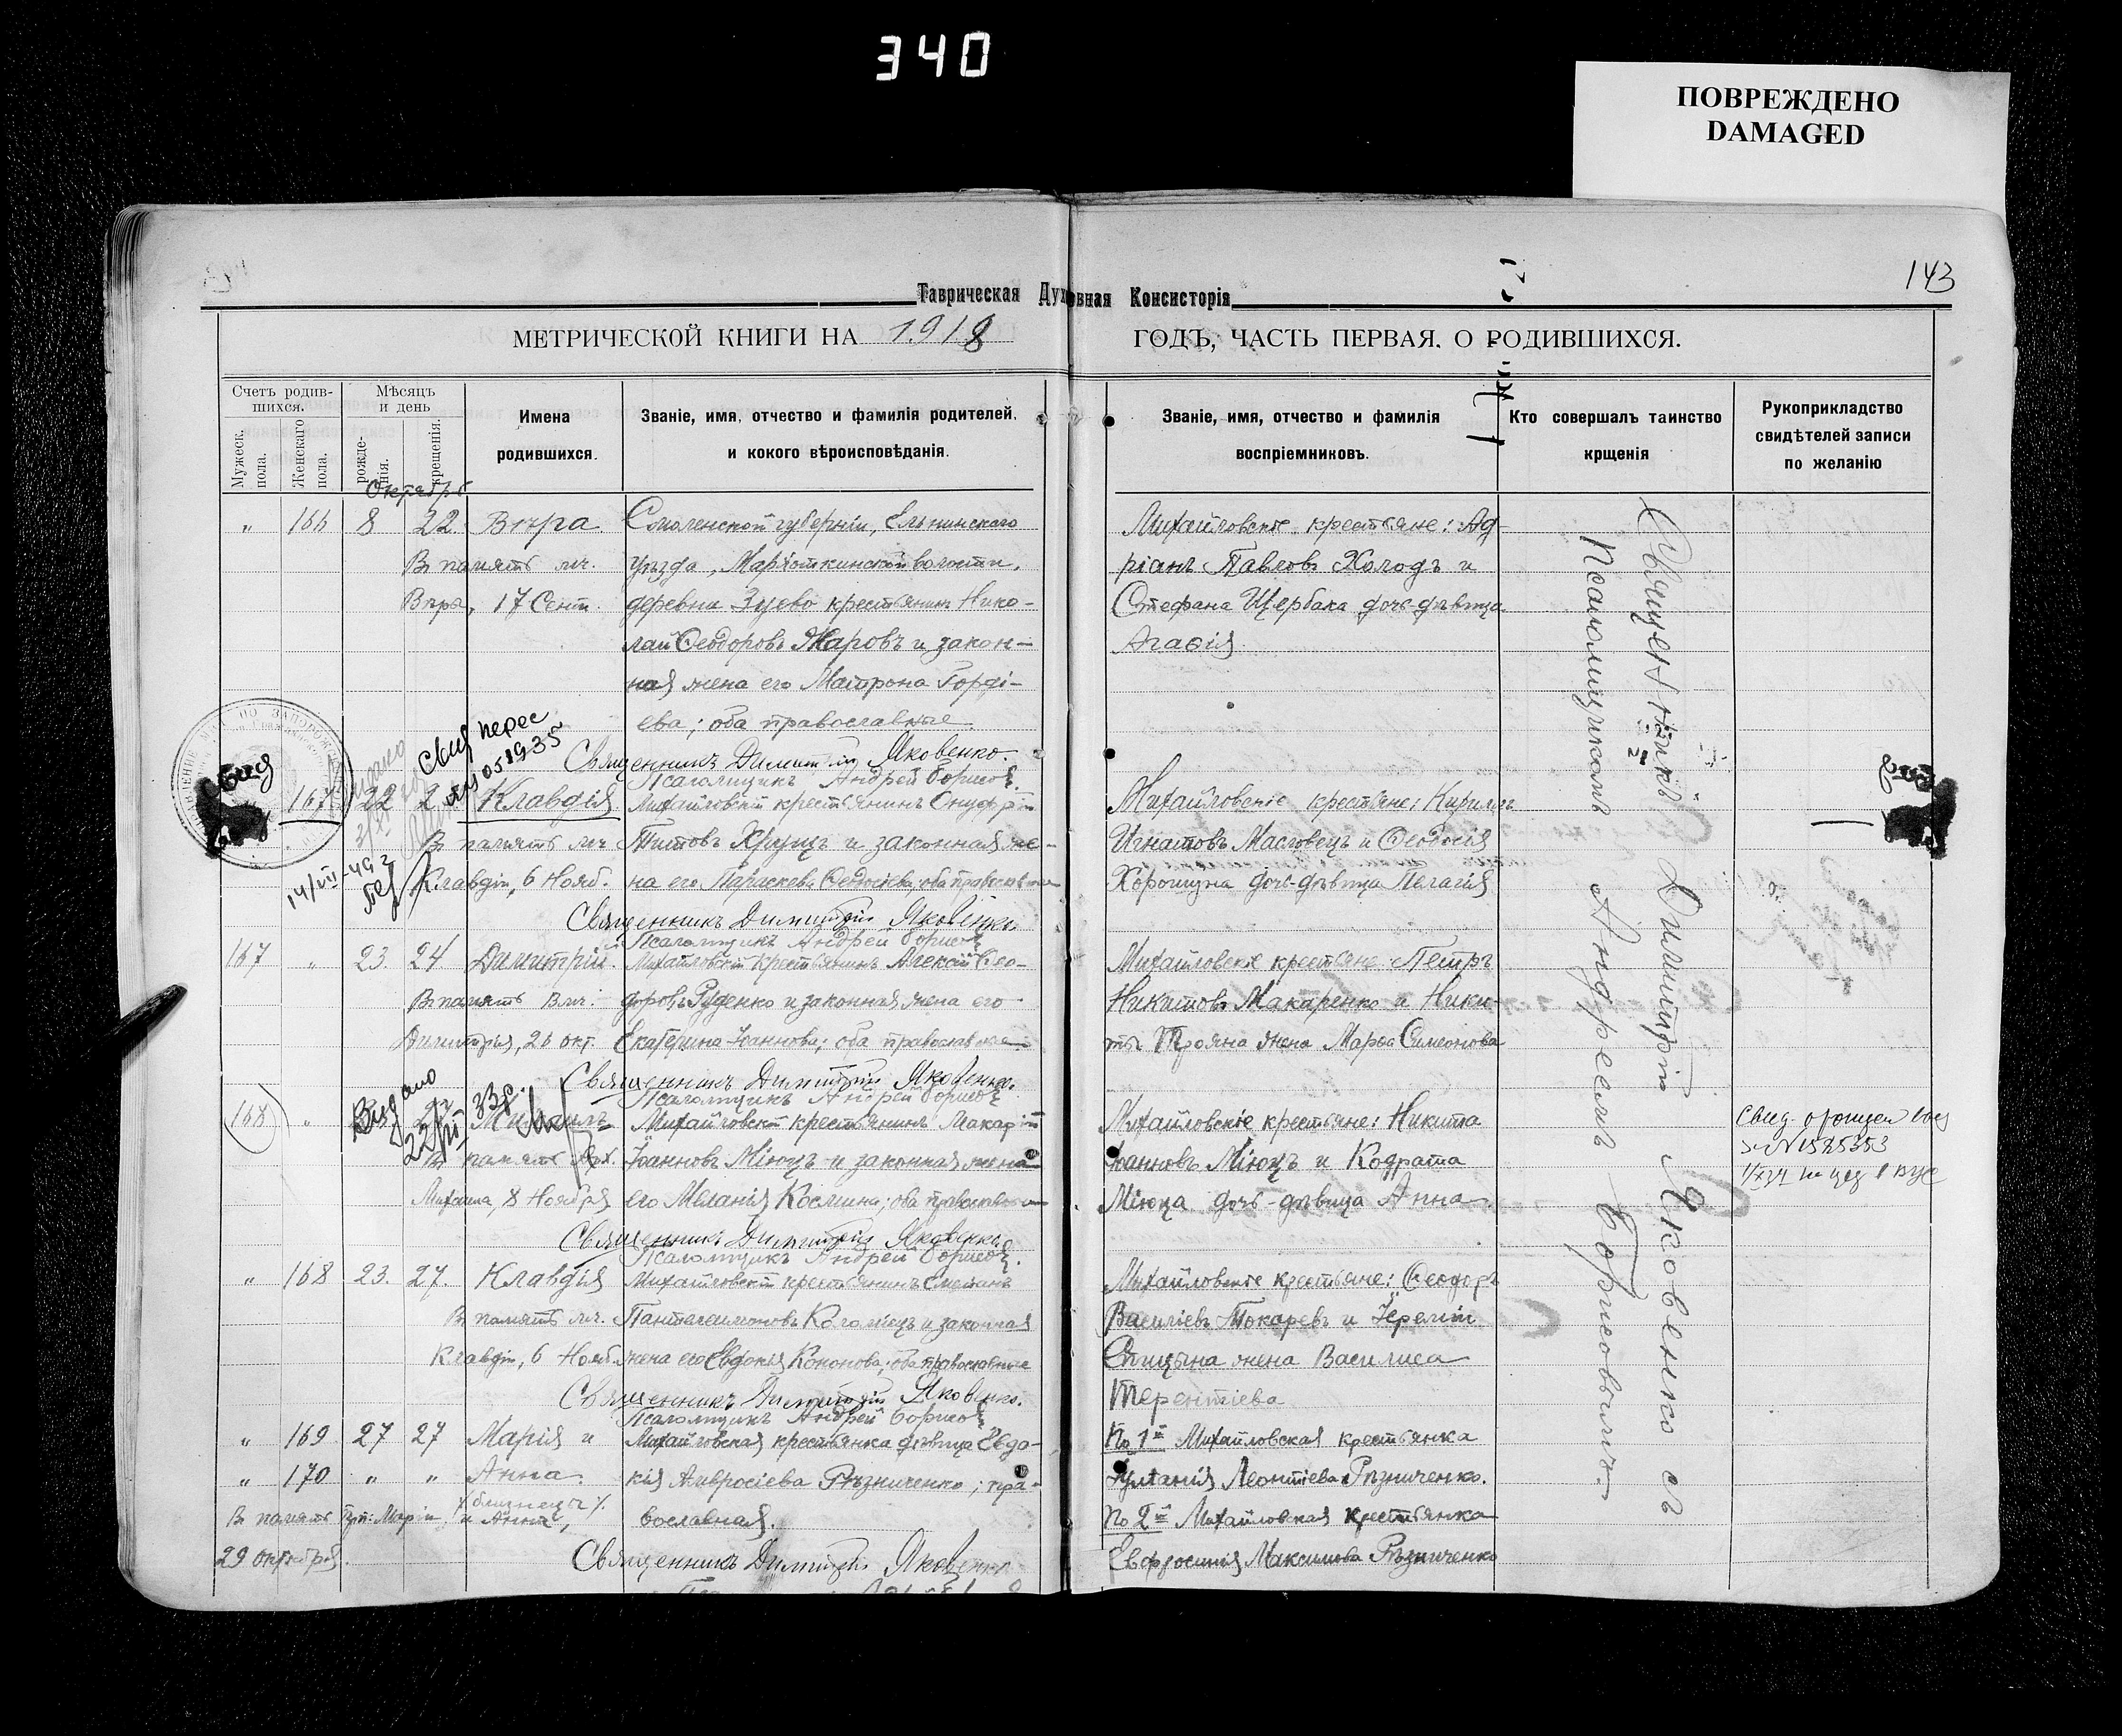 340
ПОВРЕЖДЕНО
DAMAGED
143
Таврическая Духовная Консисторія
МЕТРИЧЕСКОЙ КНИГИ НА 1918 ГОДЪ, ЧАСТЬ ПЕРВАЯ. О РОДИВШИХСЯ.
Счетъ родив-
шихся.
Мужеск.
пола.
Женскаго
пола.
Мѣсяцъ
и день
рожде-
нія.
крещенія.
Имена
родившихся.
Званіе, имя, отчество и фамилія родителей,
и кокого вѣроисповѣданія.
Званіе, имя, отчество и фамилія
воспріемниковъ.
Кто совершалъ таинство
крщенія
Рукоприкладство
свидѣтелей записи
по желанію
Октябрь
„ 166 8 22 Вѣра. Смоленской губерніи, Ельнинскаго
Въ память мч. уѣзда, волости,
Вѣры, 17 Сент. деревни Зуево крестьянинъ Нико-
лай Ѳеодоровъ Жаровъ и закон-
ная жена его Матрона Горді-
ева; оба православные
Священникъ Димитрій Яковенко.
Псаломщикъ Андрей Борисов
Михайловскіе крестьяне: Ад-
ріанъ Павловъ Холодъ и
Стефана Щербака дочь-дѣвица
Агаѳія
167 22 Клавдія. Михайловскій крестьянинъ Онуфрій
Въ память мч. Титовъ Хрущъ и законная же-
Клавдіи, 6 Нояб. на его Параскева Ѳеодосіева; оба православные
Священникъ Димитрій Яковенко.
Псаломщикъ Андрей Борисов
Михайловскіе крестьяне: Кириллъ
Игнатовъ Масловецъ и Ѳеодосія
Хорошуна дочь-дѣвица Пелагія
14/VII-49 г
167 „ 23. 24 Димитрій. Михайловскій крестьянинъ Алексій Ѳео-
Въ память Вмч. доровъ Руденко и законная жена его
Димитрія, 26 окт. Екатерина Іоаннова; оба православные
Священникъ Димитрій Яковенко.
Псаломщикъ Андрей Борисов
Михайловскіе крестьяне: Петръ
Никитовъ Макаренко и Ники-
ты Трояна жена Марѳа Симеонова
168 „ Михаилъ Михайловскій крестьянинъ Макарій
Въ память Арх. Іоанновъ Міюцъ и законная жена
Михаила, 8 Ноября его Меланія Космина; оба православные
Священникъ Димитрій Яковенко.
Псаломщикъ Андрей Борисов.
Михайловскіе крестьяне: Никита
Іоанновъ Міюцъ и Кодрата
Міюца дочь-дѣвица Анна
„ 168 23. 27. Клавдія Михайловскій крестьянинъ Стефанъ
Въ память мч. Пантелеимоновъ Коломіецъ и законная
Клавдіи, 6 Нояб. жена его Евдокія Кононова; оба православные
Священникъ Димитрій Яковенко.
Псаломщикъ Андрей Борисов
Михайловскіе крестьяне: Ѳеодоръ
Василіевъ Токаревъ и Іереміи
Спицына жена Василиса
Терентіева
„ 169 27 27 Марія и Михайловская крестьянка дѣвица Евдо-
„ 170 „ „ Анна. кія Амвросіева Рѣзниченко; пра-
близнецы
Въ память Прп: Маріи и Анны, вославная.
29 октября.
Священникъ Димитрій Яковенко
По 1й Михайловская крестьянка
Іуліанія Леонтіева Рѣзниченко.
По 2й Михайловская крестьянка
Евфросинія Максимова Рѣзниченко
Священникъ Димитрій Яковенко съ
Псаломщикомъ Андреемъ Борисовымъ.